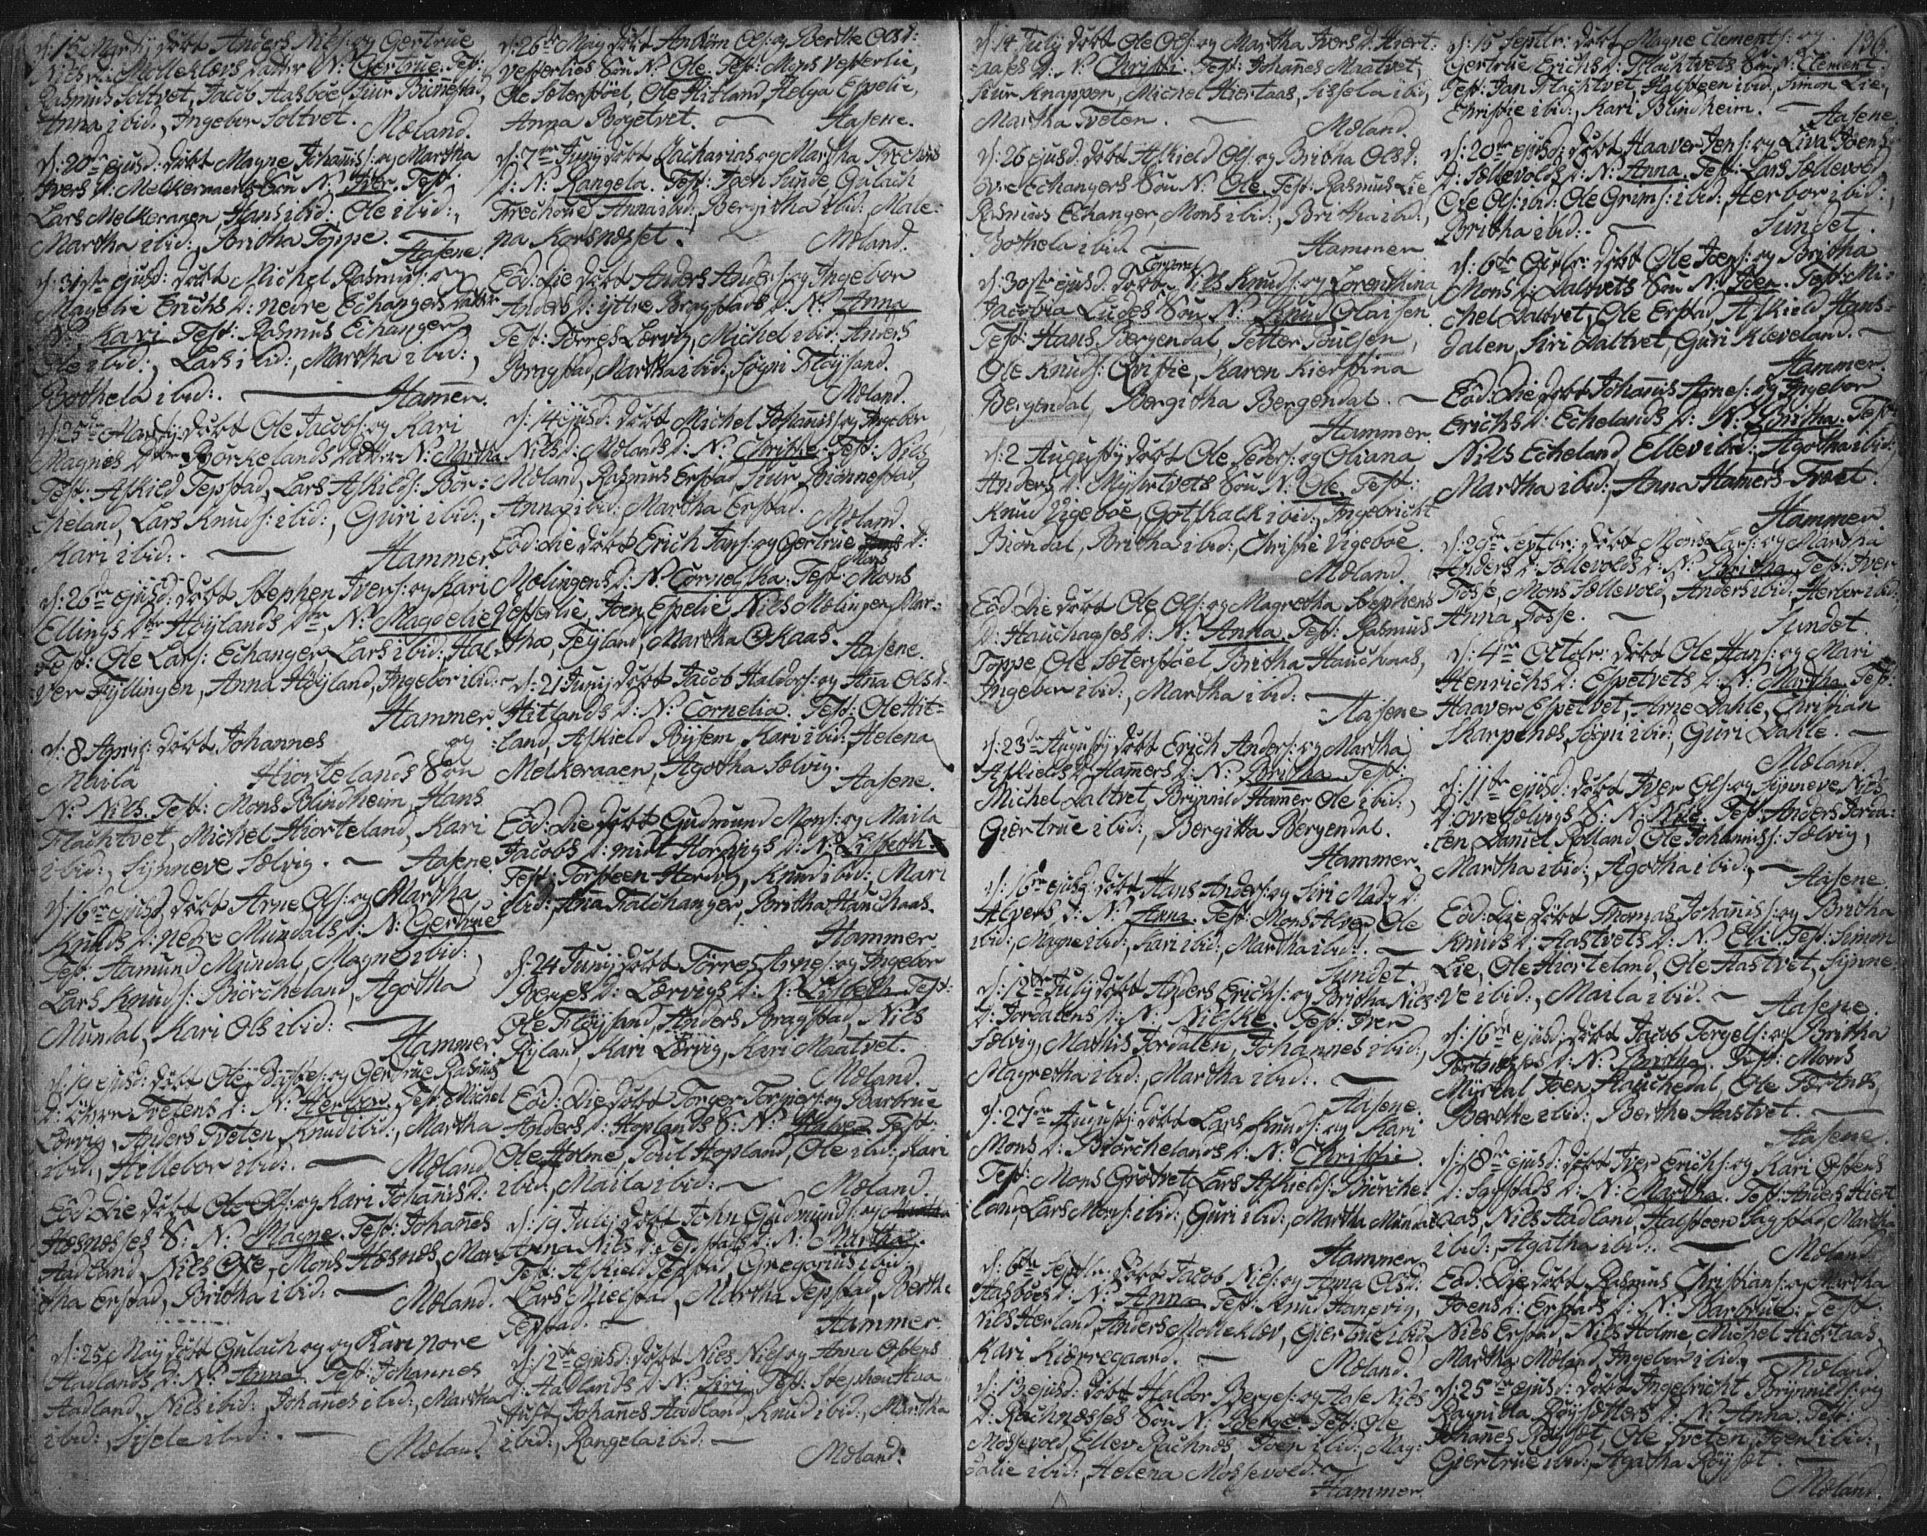 d: 15 Martij døbt Anders Nils: og Gertrue
Nils Mölleklevs datter N: Gertrue. Test:
Rasmus Soltvet, Jacob Aasboe, Siur Biönnestad,
Anna ibid:, Ingebor Soltvet. Mæland.
d: 20de ejusd: døbt Magne Johannis: og Martha
Ivers D: Melkeraaens Sön N: Iver. Test:
Lars Melkeraaen, Hans ibid: Ole ibid:,
Martha ibid:, Britha Toppe. Aasene.
d: 31ste ejusd: døbt Michel Rasmus: og
Magelie Erichs D: nedre Echangers datter
N: Kari. Test: Rasmus Echanger,
Ole ibid:, Lars ibid:, Martha ibid:,
Bothela ibid:. Hamer.
d: 25de Martij døbt Ole Jacobs: og Kari
Magnes Dtr Biorkelands datter N: Martha
Test: Askild Tepstad, Lars Askilds: Bör:
cheland, Lars Knuds: ibid:, Guri ibid:,
Kari ibid:. Hammer.
d: 26de ejusd: døbt Stephen Ivers: og Kari
Ellings Dtr Höylands Dtr, N: Magdelie
Test: Ole Lars: Echanger, Lars ibid: Hal
ver Fyllingen, Anna Höyland, Ingebor ibid:
Hammer
d: 8 April: døbt Johannes og
Maila Hiortelands Sön
N: Nils. Test: Mons Blindheim, Hans
Flachtvet, Michel Hiorteland, Kari
ibid:, Synneve Sælvig. Aasene.
d: 16de ejusd: døbt Arne Ols: og Martha
Knuds D: nedre Mundals D: N: Gertrue
Test: Aamund Mundal, Magne ibid:,
Lars Knuds: Biörcheland, Agotha
Mundal, Kari Ols ibid: Hammer
d: 19 ejusd: døbt Ole og Gertrue Rasmus
D: Tvetens D: N: Herbor. Test: Michel
Lervig, Anders Tveten, Knud ibid:, Martha
ibid:, Hillebor ibid:. Mæland.
Eod: Die døbt Ole Ols: og Kari Johanis D:
Hosnesses S: N: Magne. Test: Johanes
Aadland, Nils Oxe, Mons Hosnes, Mar
tha Erstad, Britha ibid. Mæland.
d: 25 Maij døbt Gulach og Kari nore
Aadlands D: N: Anna. Test: Johannes
Aadland, Nils ibid:, Johanes ibid:, Martha
ibid:, Sisele ibid:. Mæland.
d: 26de Maij døbt Ols: og Berthe Ols D:
Vesterlies Sön N: Ole. Test: Mons Vesterlie,
Ole Sæterstöel, Ole Hitland, Helga Espelie,
Anna Böyetvet. Aasene.
d: 7de Junij døbt Zacharias og Martha Frechoue
D: N: Rangela. Test: Joen Sunde Gulach
Frechoue Anna ibid:, Bergitha ibid: Male
na Korsnesset. Mæland.
Eod: Die døbt Anders Anders: og Ingebor
Anders D: yttre Bragstads D: N: Anna
Test: Törres Lervig, Michel ibid: Anders
Bragstad, Martha ibid:, Sygni Flöysand.
Mæland.
d: 14 ejusd: døbt Michel Johannis: og Ingebor
Nils D: Mælands D: N: Christie. Test: Nils
Mæland, Rasmus Erstad, Siur Biönnestad,
Anna ibid: Martha Erstad. Mæland.
Eod: Die døbt Erich Jans: og Gertrue Mons D:
Mælingens D: N: Corneltha. Test: Mons
Vesterlie, Joen Espelie Nils Mælingen, Mar:
tha, Feyland, Martha Okaas. Aasene.
d: 21 Junij døbt Jacob Haldors: og Ana Ols D:
Hitlands D: N: Cornelia. Test: Ole Hit:
land, Askield Bysem Kari ibid: Helena
Melkeraaen, Agotha Sælvig. Aasene.
Eod: Die døbt Gudmund Mons: og Maila
Jacobs D: midt Horvigs D: N: Lisbeth.
Test: Torsteen Horvig, Knud ibid: Mari
ibid: Ana Faldhanger, Britha Hauchaas.
Hammer.
d: 24 Junij døbt Törres Arnes: og Ingebor
Börges D: Lervigs D: N: Lisbeth Test:
Ole Flöysand, Anders Bragstad, Nils
Ryland, Kari Lervig, Kari Maatvet.
Mæland.
Eod: Die døbt Torger Torgers: og Barbrue
Anders D: Hoplands S: N: Halvor Test:
Ole Holme, Poul Hopland, Ole ibid: Kari
ibid:, Maila ibid: Mæland.
d: 19 Julij døbt John Gudmunds: og
Anna Nils D: Tepstads D: N: Martha.
Test: Askield Tepstad, Gregorius ibid:,
Lars Mielstad, Martha Tepstad, Berthe
Tepstad. Hammer.
d: 12te ejusd: døbt Niels Niels: og Anna Ostens
D: Aadlands D: N: Siri. Test: Stephen Hau
Tuft, Johanes Aadland, Knud ibid:, Martha
ibid:, Rangela ibid: Mæland.
d: 14 Julij døbt Ole Ols: og Martha Ivers D: Hiert:
aases D: N: Christi. Test: Johanes Maatvet,
Siur Knappen, Michel Hiertaas, Sissela ibid,
Martha Tveten. Mæland.
d: 26 ejusd: døbt Askield Ols: og Britha Ols D:
öv: Echangers Sön N: Ole. Test: Rasmus Lie
Rasmus Echanger, Mons ibid:, Britha ibid:,
Bothela ibid. Hammer.
d: 30ste ejusd. døbt Corporal Nils Knuds: og Lorenthina
Jacobia Ludes Sön N: Knud Claisen
Test: Hans Bergendal, Petter Poulsen,
Ole Knuds: Qvistie, Karen Kierstina
Bergendal, Bergitha Bergendal.
Hammer.
d: 2 Augustij døbt Ole Peders: og Oliana
Anders D: Myhrtvets Sön N: Ole. Test:
Knud Vigeboe, Gotskalk ibid:, Ingebricht
Biöndal, Britha ibid:, Christie Vigeboe.
Mæland.
Eod: Die døbt Ole Ols: og Magretha Stephens
D: Hauchaases D: N: Anna. Test: Rasmus
Toppe, Ole Sæterstöel Britha Hauchaas,
Ingebor ibid:, Martha ibid: Aasene
d: 23de Augustij døbt Erich Anders: og Martha
Askields D: Hamers D: N: Britha. Test:
Michel Daltvet, Brynnild Hamer Ole ibid:,
Giertrue ibid:, Bergitta Bergendal.
Hammer.
d: 16de ejusd: døbt Hans Anders: og Siri Mads D:
Alvers D: N: Anna. Test: Mons Alver Ole
ibid:, Magne ibid:, Kari ibid:, Martha ibid:
Sundet.
d: 12te Julij døbt Anders Erichs: og Britha Nils
D: Jordalens D: N: Nilske. Test: Iver
Sælvig, Mathis Jordalen, Johannes ibid:,
Magretha ibid:, Martha ibid:.
Aasene.
d: 27de Augustij døbt Lars Knuds: og Kari
Mons D: Biörchelands D: N: Christie.
Test: Mons Grötvet, Lars Askields: Biörche:
land, Lars Mons: ibid:, Guri ibid:, Martha Mundal
Hammer
d: 6te Septbr: døbt Jacob Niels: og Anna Ols D:
Aasboes D: N: Anna. Test: Knud Hanevig,
Nils Herland, Anders Mölleklev, Giertrue ibid:
Kari Kierregaard. Mæland.
d: 13 ejusd: døbt Haldor Berges: og Aase Nils
D: Rachnesses Sön N: Berge. Test: Ole
Mossevold, Ellev Rachnes, Joen ibid:, Mag:
dalie ibid:, Helena Mossevold.
Hammer.
136.
d: 15 Septbr: døbt Magne Clements: og
Gertrue Erichs D: Flachtvets Sön N: Clement.
Test: Jan Flachtvet, Halsteen ibid, Simon Lie,
Christie ibid:, Kari Blindheim. Aasene
d: 20de ejusd: døbt Haaver Jens: og Liva Joens
D: Sællevolds D: N: Anna. Test: Lars Sællevold
Ole Ols: ibid: Ole Grims: ibid:, Herbor ibid:,
Britha ibid:. Sundet.
d: 6te Octbr: døbt Ole Joens: og Britha
Mons D: Daltvets Sön N: Joen. Test: Mi
chel Daltvet, Ole Erstad, Askield Hans:
dalen, Siri Daltvet, Guri Kleveland.
Hammer.
Eod: Die døbt Johanis Arnes: og Ingebor
Erichs D: Echelands D: N: Britha. Test:
Nils Echeland Ellev ibid:, Agotha ibid:
Martha ibid:, Anna Hamers Træet.
Hammer.
d: 29de Septbr: døbt Mons Lars: og Martha
Anders D: Sællevolds D: N: Britha. Test: Iver
Fosse, Mons Sællevold, Anders ibid, Herbor ibid:
Anna Fosse. Sundet.
d: 4de Octobr: døbt Ole Hans: og Mari
Henrichs D: Espetvets D: N: Martha. Test:
Haaver Espetvet, Arne Dahle, Christian
Skarpenes, Sygni ibid:, Guri Dahle.
Mæland.
d: 11te ejusd: døbt Iver Ols: og Synneve Nils
D: övre Sælvigs S: N: Nils. Test: Anders Jorda:
len, Daniel Rolland, Ole Johannis: Sælvig,
Martha ibid:, Agotha ibid:, Aasene.
Eod: Die døbt Thomas Johannis: og Britha
Knuds D: Aastvets D: N: Eli. Test: Simon
Lie, Ole Hiorteland, Ole Aastvet, Synne:
ve ibid:, Maila ibid:. Aasene.
d: 16de ejusd: døbt Jacob Torgels: og Britha
D: N: Britha. Test: Mons
Myrdal Joen Hauchedal, Ole Fortnes,
Berthe ibid:, Berthe Aastvet.
Aasene.
d: 18de ejusd: døbt Iver Erichs: og Kari Ostens
D: Sagstads D: N: Martha. Test: Anders Hiert
aas, Nils Aadland, Halsteen Sagstad, Martha
ibid:, Agatha ibid:. Mæland
Eod: Die døbt Rasmus Christians: og Martha
Joens D: Erstads D: N: Barbrue. Test:
Niels Erstad, Niels Holme, Michel Hiertaas,
Martha Mæland, Ingebor ibid: Mæland.
d: 25de ejusd: døbt Ingebricht Brynnilds: og
Ragnilla Röysetters D: N: Anna. Test:
Johanes Röysset, Ole Tveten, Joen ibid:,
Giertrue ibid:, Agatha Röysæt.
Mæland.